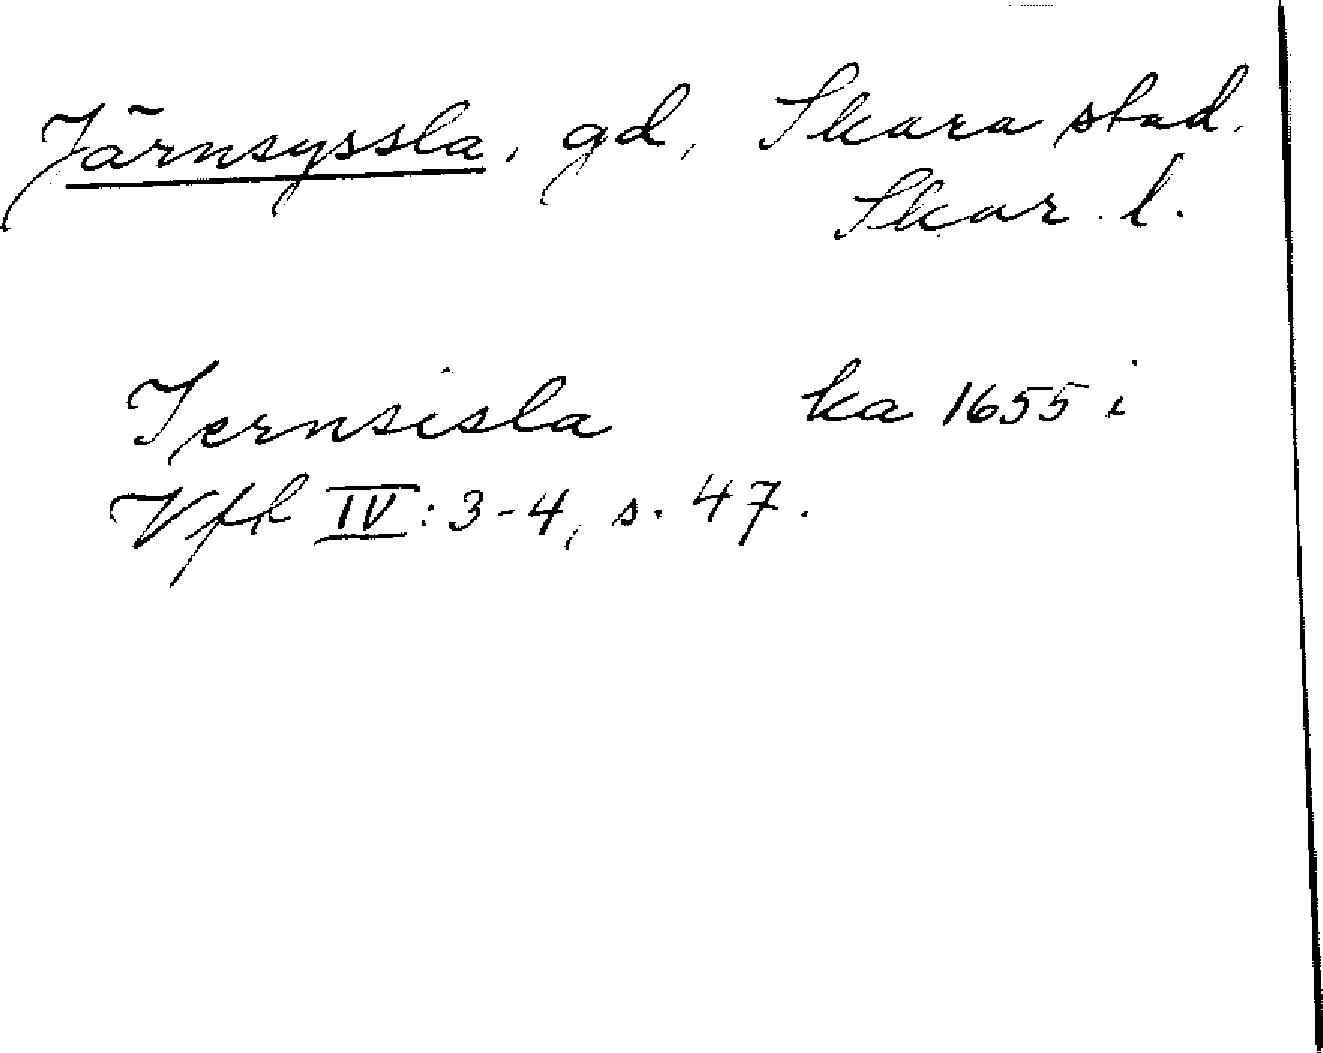 Järnsyssla, gd, Skara stad.
Skar. l.
Iernsisla ka 1655 i
Vfh IV: 3-4, s. 47.